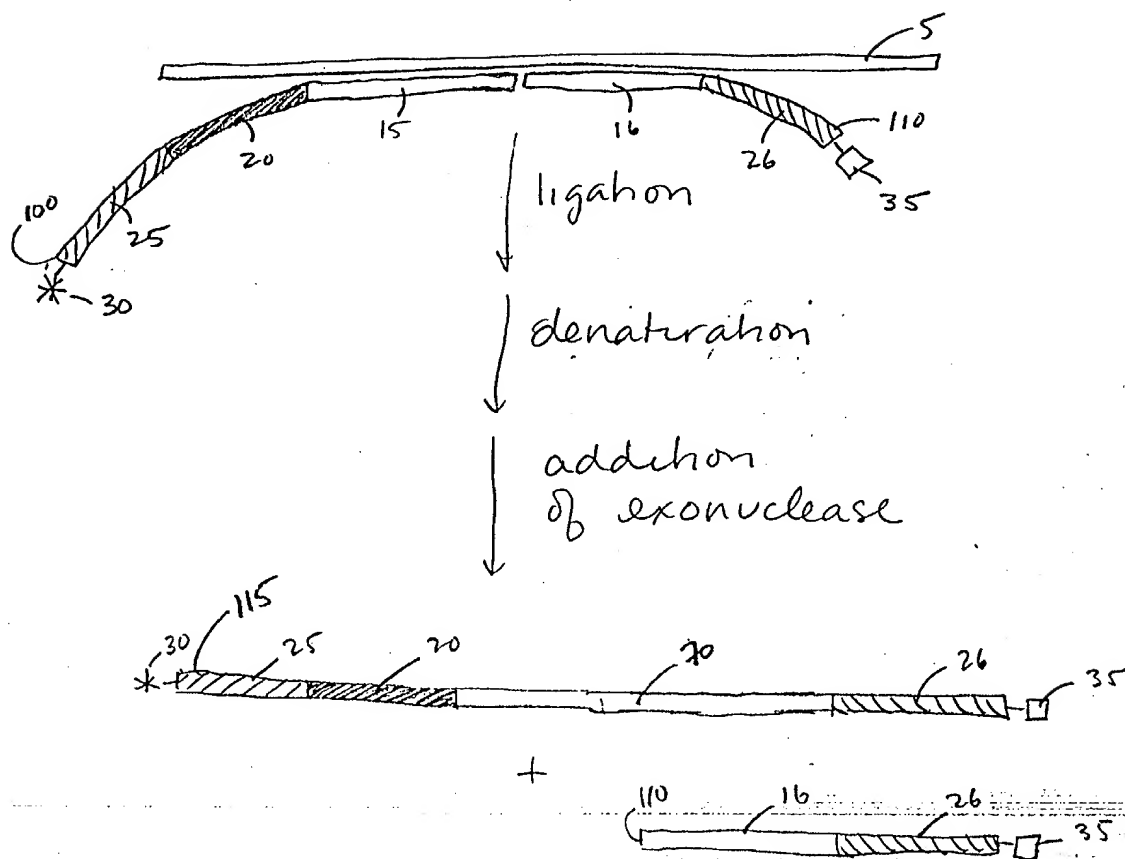 5
15 16 110
20 26
35
100 25
30
ligation
denaturation
addition
of exonuclease
30 115 25 20 70 26 35
+
110 16 26 35